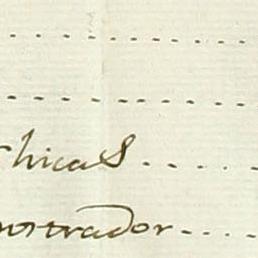 chicas....
nostrador....